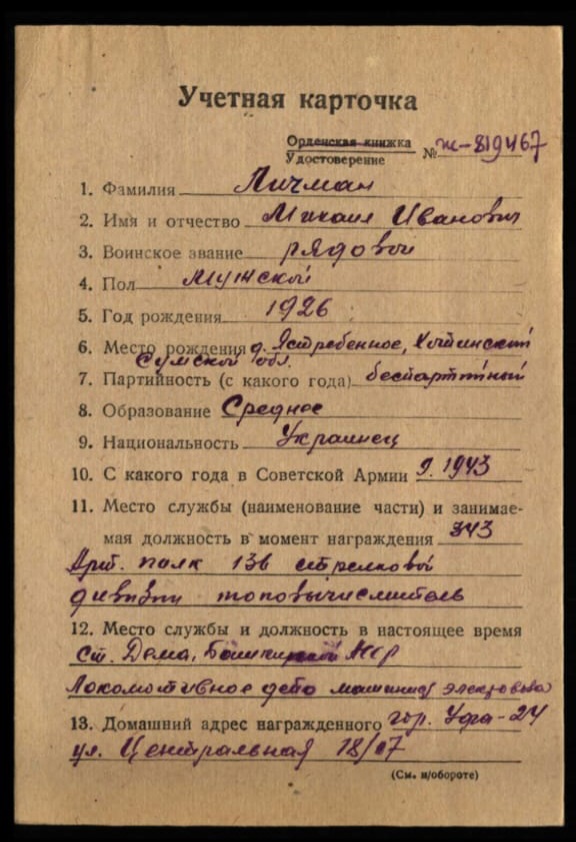 Учетная карточка
Орденская книжка
Удостоверение № Ж-819467
1. Фамилия Личман
2. Имя и отчество Михаил Иванович
3. Воинское звание рядовой
4. Пол Мужской
5. Год рождения 1926
6. Место рождения д. Ястребенное, Хотинский
Сумской обл.
7. Партийность (с какого года) беспартійный
8. Образование Среднее
9. Национальность Украинец
10. С какого года в Советской Армии 9.1943
11. Место службы (наименование части) и занимае-
мая должность в момент награждения 343
Арт. полк 136 стрелковой
дивизии топовычислитель
12. Место службы и должность в настоящее время
ст. Дема, Башкирской АССР
Локомотивное депо машинист электровоза
13. Домашний адрес награжденного гор. Уфа-24
ул. Центральная 18/
(См. н/обороте)